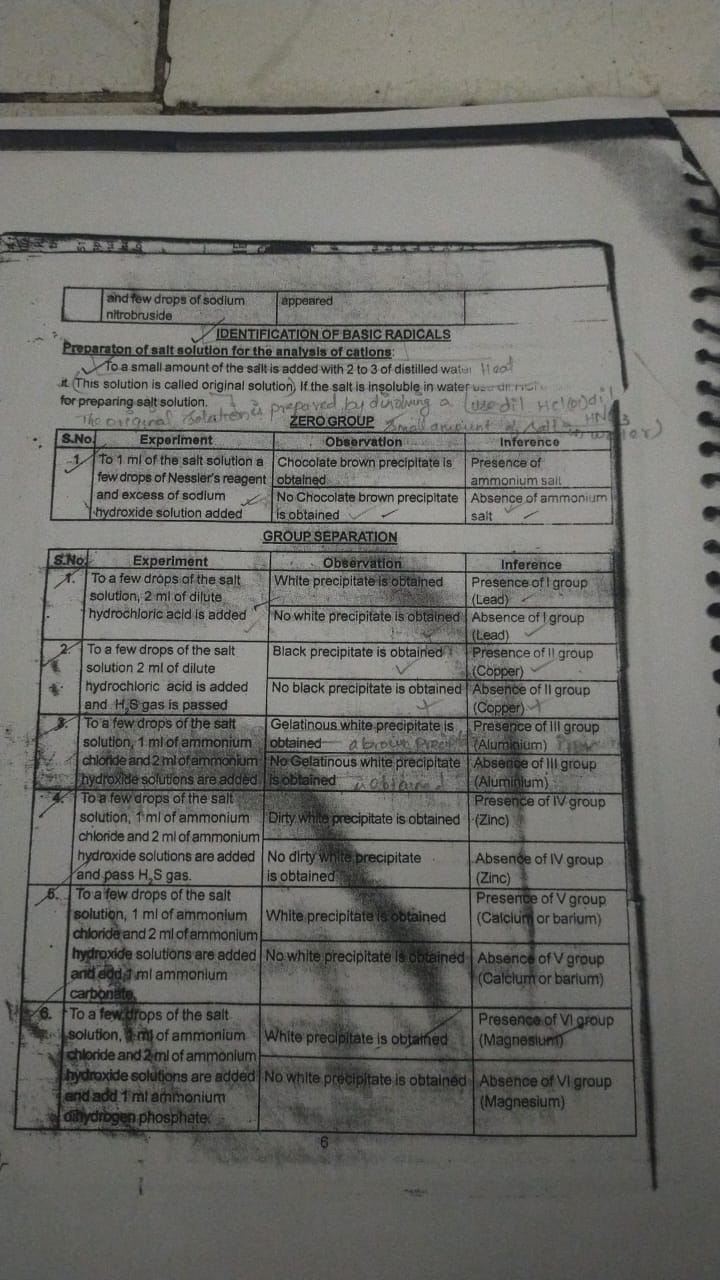 and few drops of sodium appeared
nitrobruside
IDENTIFICATION OF BASIC RADICALS
Preparaton of salt solution for the analysis of cations:
To a small amount of the salt is added with 2 to 3 of distilled water Heat
it (This solution is called original solution) If the salt is insoluble in water use dil
for preparing salt solution.
The original solution is prepared by dissolving a (use dil HCl (or) dil
small amount of salt in water) HNO3
ZERO GROUP
S.No. Experiment Observation Inference
1. To 1 ml of the salt solution a Chocolate brown precipitate is Presence of
few drops of Nessler's reagent obtained ammonium salt
and excess of sodium No Chocolate brown precipitate Absence of ammonium
hydroxide solution added is obtained salt
GROUP SEPARATION
S.No. Experiment Observation Inference
1. To a few drops of the salt White precipitate is obtained Presence of I group
solution, 2 ml of dilute (Lead)
hydrochloric acid is added No white precipitate is obtained Absence of I group
(Lead)
2. To a few drops of the salt Black precipitate is obtained Presence of II group
solution 2 ml of dilute (Copper)
hydrochloric acid is added No black precipitate is obtained Absence of II group
and H2S gas is passed (Copper)
3. To a few drops of the salt Gelatinous white precipitate is Presence of III group
solution, 1 ml of ammonium obtained a brown (Aluminium)
chloride and 2 ml of ammonium No Gelatinous white precipitate Absence of III group
hydroxide solutions are added is obtained is obtained (Aluminium)
4. To a few drops of the salt Presence of IV group
solution, 1 ml of ammonium Dirty white precipitate is obtained (Zinc)
chloride and 2 ml of ammonium
hydroxide solutions are added No dirty white precipitate Absence of IV group
and pass H2S gas. is obtained (Zinc)
5. To a few drops of the salt Presence of V group
solution, 1 ml of ammonium White precipitate is obtained (Calcium or barium)
chloride and 2 ml of ammonium
hydroxide solutions are added No white precipitate is obtained Absence of V group
and add 1 ml ammonium (Calcium or barium)
carbonate.
6. To a few drops of the salt Presence of VI group
solution, 1 ml of ammonium White precipitate is obtained (Magnesium)
chloride and 2 ml of ammonium
hydroxide solutions are added No white precipitate is obtained Absence of VI group
and add 1 ml ammonium (Magnesium)
dihydrogen phosphate.
6